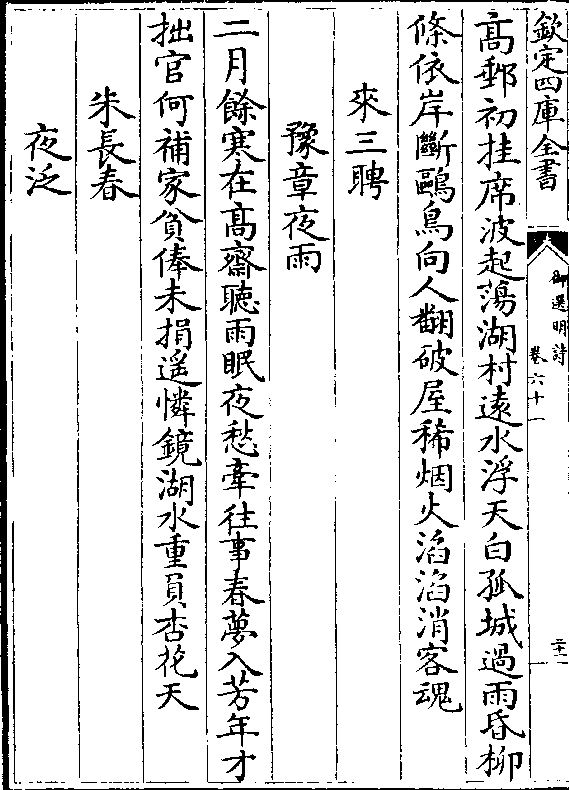 欽定四庫全書
御選明詩
卷六十一
二十一
高郵初挂席波起蕩湖村遠水浮天白孤城過雨昏柳
條依岸斷鷗鳥向人翻破屋稀烟火滔滔消客魂
來三聘
豫章夜雨
二月餘寒在高齋聽雨眠夜愁牽往事春夢入芳年才
拙官何補家貧俸未捐遥憐鏡湖水重負杏花天
朱長春
夜泛